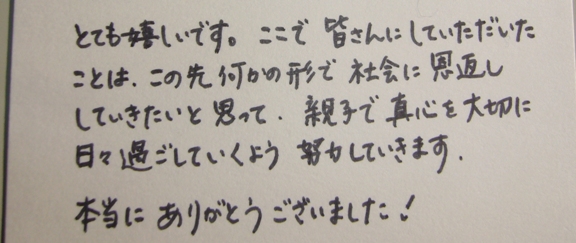 とても嬉しいです。ここで皆さんにしていただいた
ことは、この先何かの形で社会に恩返し
していきたいと思って、親子で真心を大切に
日々過ごしていくよう努力していきます。
本当にありがとうございました！